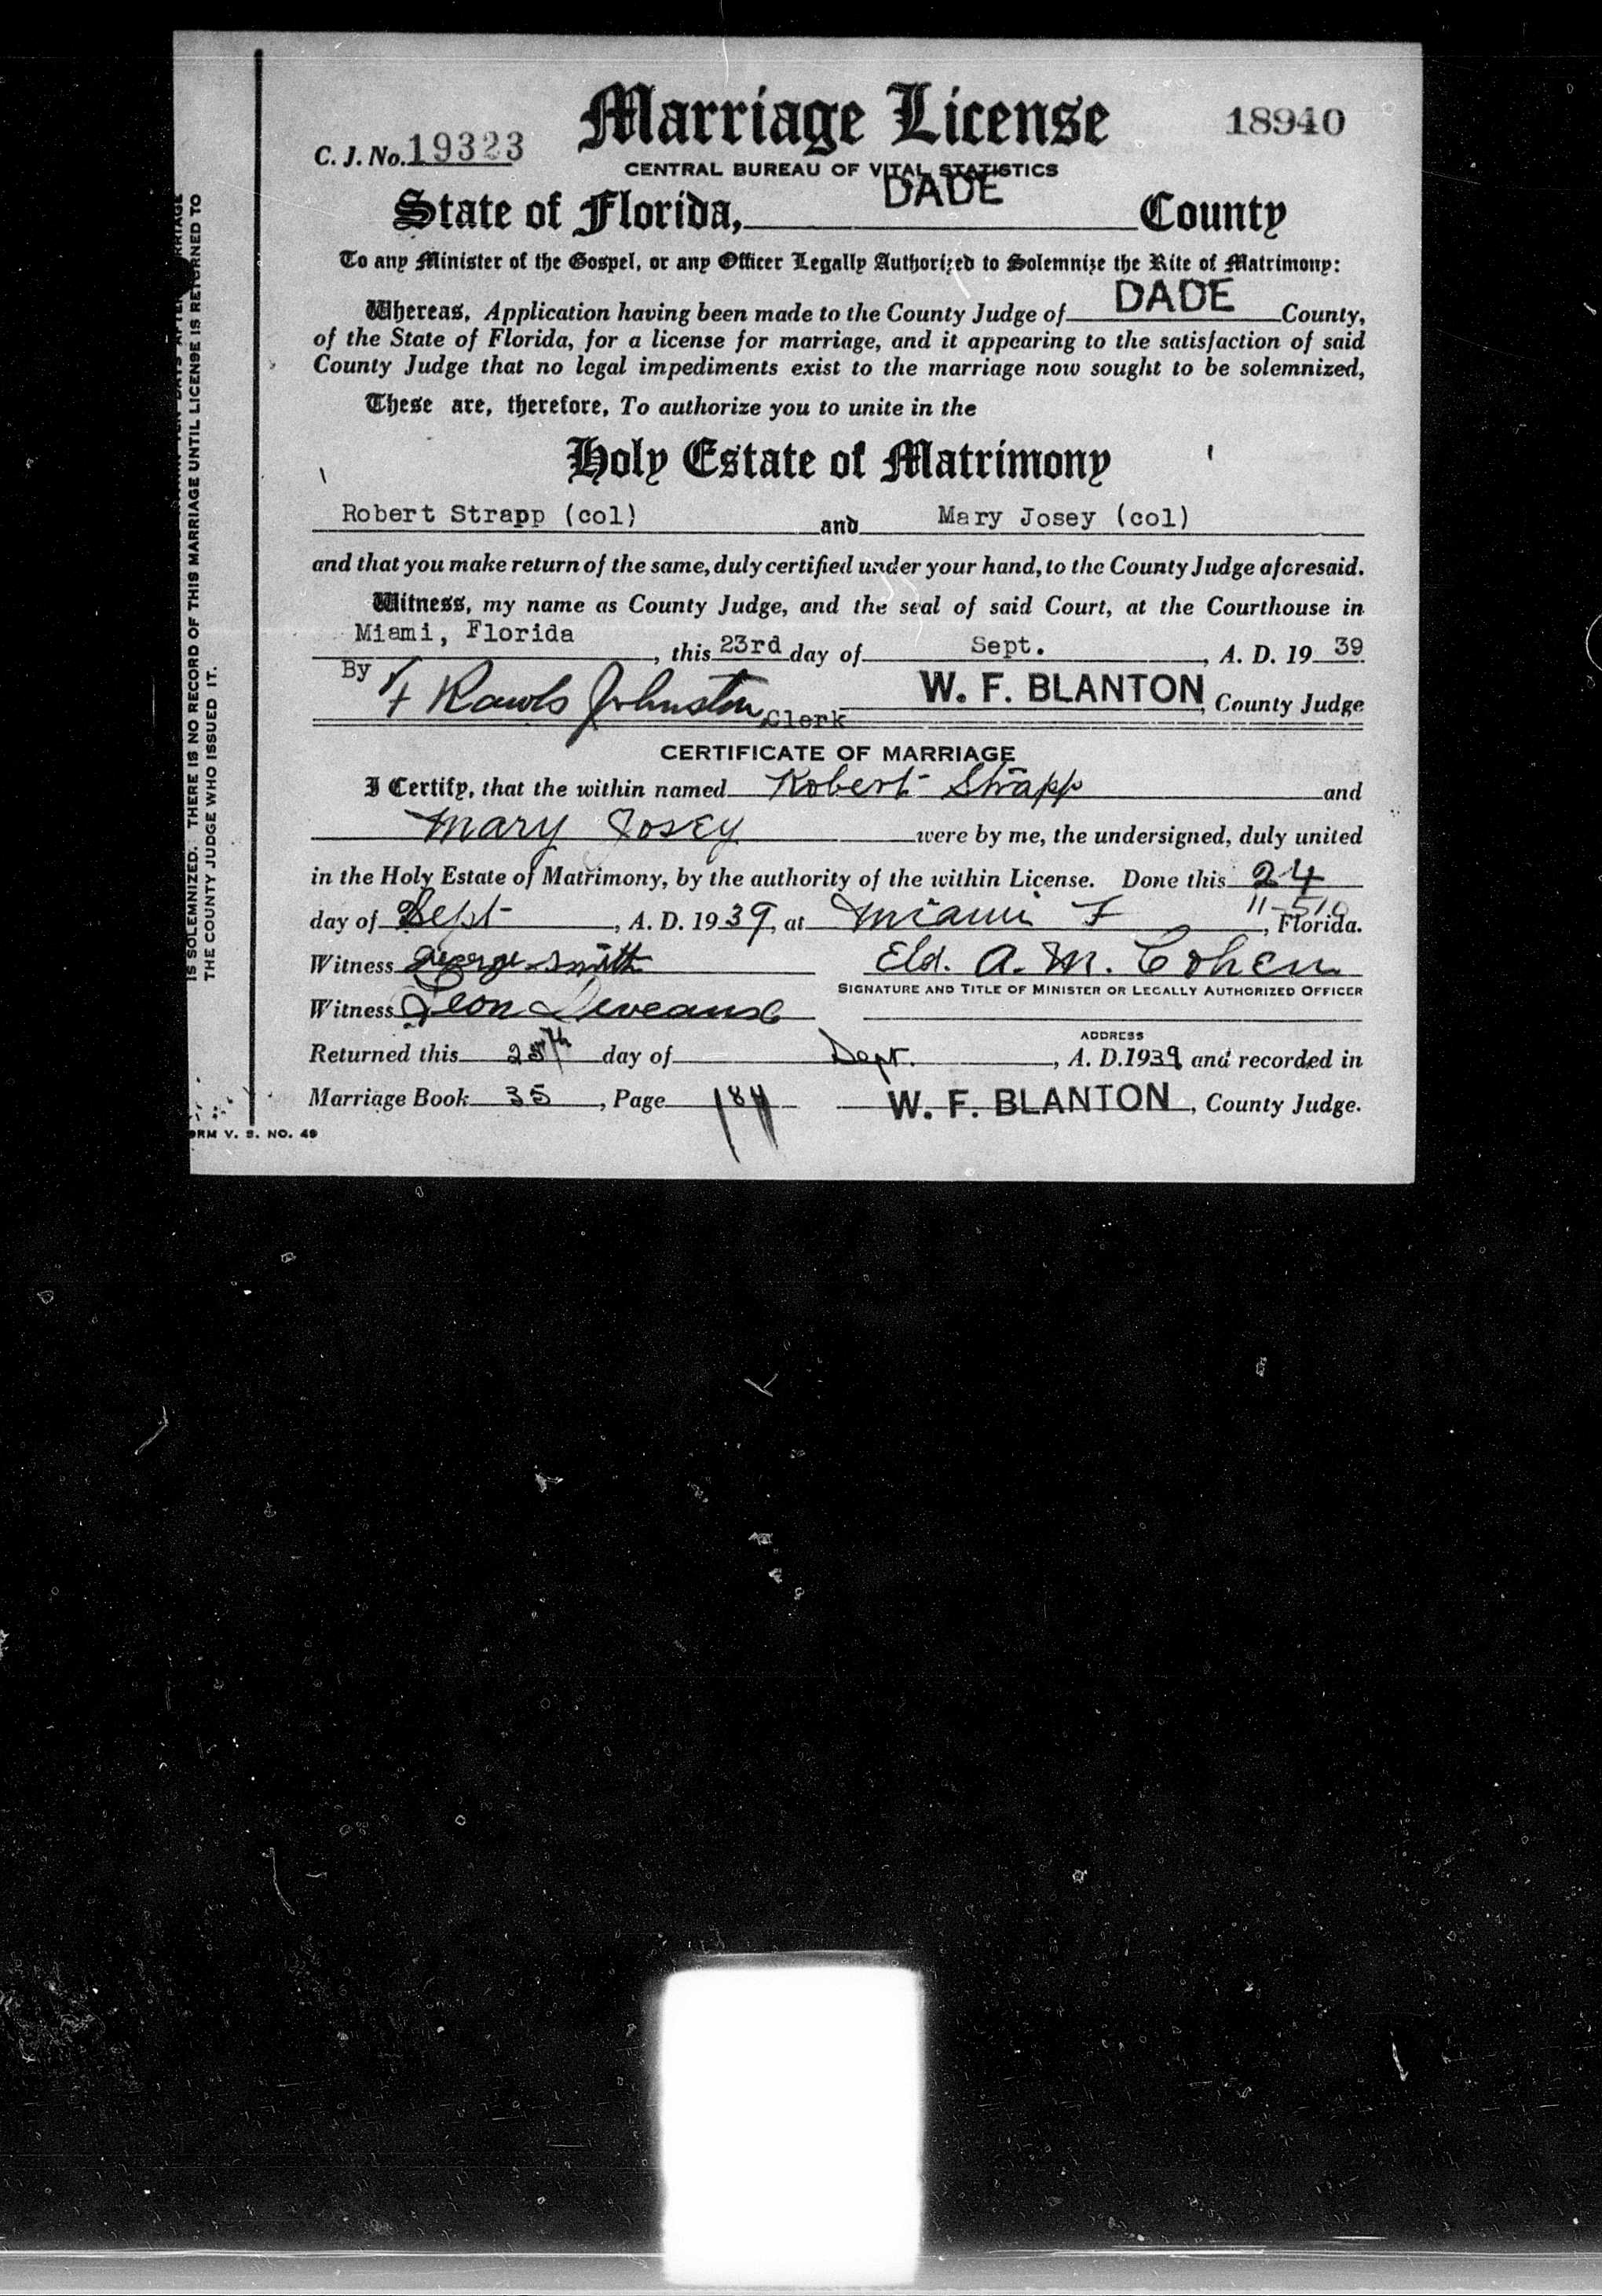 Marriage License
18940
C. J. No. 19323
CENTRAL BUREAU OF VITAL STATISTICS
State of Florida, DADE County
To any Minister of the Gospel, or any Officer Legally Authorized to Solemnize the Rite of Matrimony:
Whereas, Application having been made to the County Judge of DADE County,
of the State of Florida, for a license for marriage, and it appearing to the satisfaction of said
County Judge that no legal impediments exist to the marriage now sought to be solemnized,
These are, therefore, To authorize you to unite in the
Holy Estate of Matrimony
Robert Strapp (col) and Mary Josey (col)
and that you make return of the same, duly certified under your hand, to the County Judge aforesaid.
Witness, my name as County Judge, and the seal of said Court, at the Courthouse in
Miami, Florida, this 23rd day of Sept., A. D. 19 39
By Rawls Johnston, Clerk W. F. BLANTON, County Judge
CERTIFICATE OF MARRIAGE
I Certify, that the within named Robert Strapp and
Mary Josey were by me, the undersigned, duly united
in the Holy Estate of Matrimony, by the authority of the within License. Done this 24
day of Sept, A. D. 1939, at Miami F, Florida.
Witness George Smith Eld. A. M. Cohen
SIGNATURE AND TITLE OF MINISTER OR LEGALLY AUTHORIZED OFFICER
Witness Leon
ADDRESS
Returned this 25th day of Sept., A. D. 1939 and recorded in
Marriage Book 35, Page 184 W. F. BLANTON, County Judge.
RM V. S. NO. 49
IS SOLEMNIZED. THERE IS NO RECORD OF THIS MARRIAGE UNTIL LICENSE IS RETURNED TO
THE COUNTY JUDGE WHO ISSUED IT.